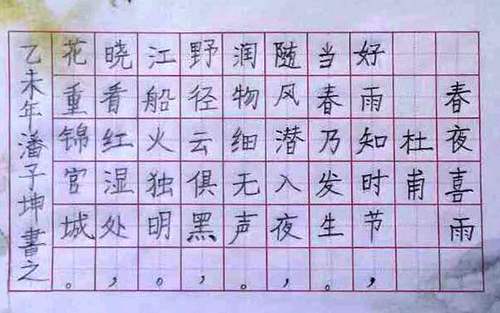 春夜喜雨
杜甫
好雨知时节，
当春乃发生。
随风潜入夜，
润物细无声。
野径云俱黑，
江船火独明。
晓看红湿处，
花重锦官城。
乙未年潘子坤書之